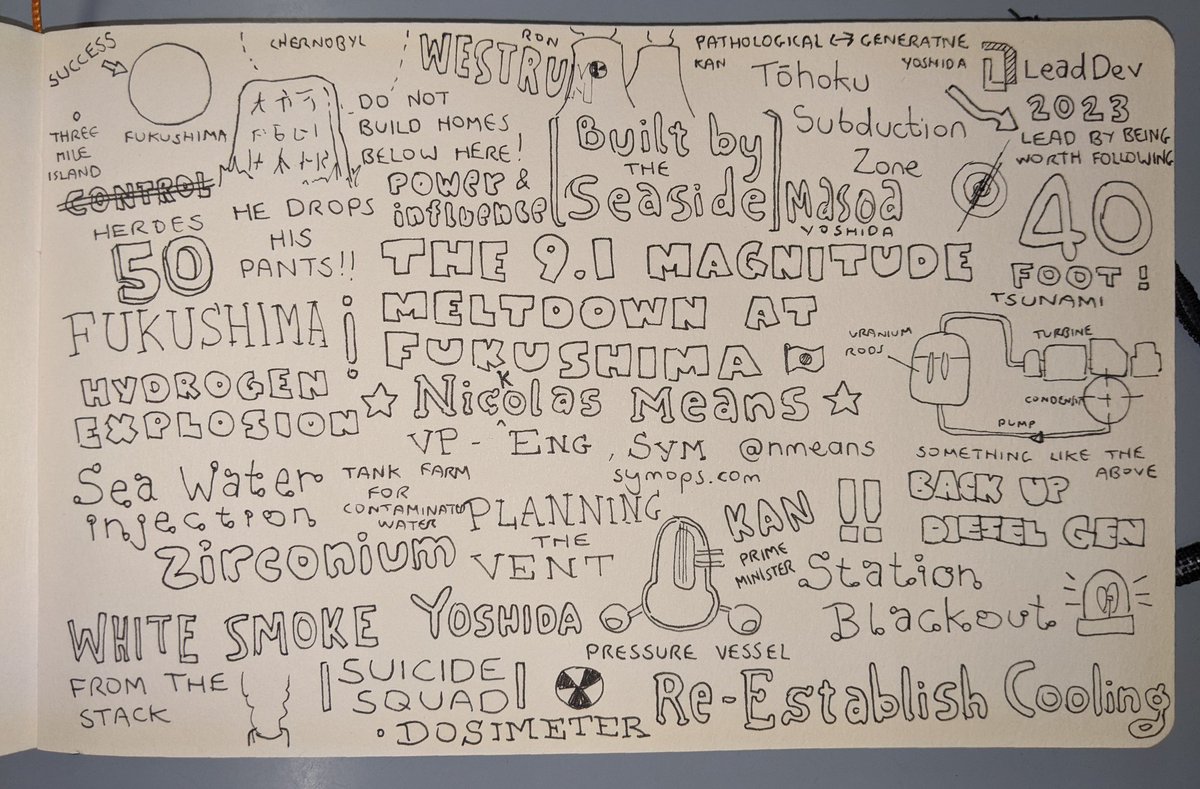 SUCCESS
CHERNOBYL
THREE
MILE
ISLAND
FUKUSHIMA
DO NOT
BUILD HOMES
BELOW HERE!
RON
WESTRUM
PATHOLOGICAL <-> GENERATIVE
KAN
YOSHIDA
Tōhoku
Subduction
Zone
LeadDev
2023
LEAD BY BEING
WORTH FOLLOWING
CONTROL
HEROES
50
HE DROPS
HIS
PANTS!!
POWER &
influence
[Built by
THE
Seaside]
Masoa
YOSHIDA
40
FOOT!
TSUNAMI
THE 9.1 MAGNITUDE
MELTDOWN AT
FUKUSHIMA
FUKUSHIMA!
HYDROGEN
EXPLOSION
Nickolas Means
VP - ENG, SYM @nmeans
symops.com
URANIUM
RODS
TURBINE
CONDENSA
PUMP
SOMETHING LIKE THE
ABOVE
Sea Water
injection
TANK FARM
FOR
CONTAMINATED
WATER
PLANNING
THE
VENT
KAN!!
PRIME
MINISTER
BACK UP
DIESEL GEN
Zirconium
Station
Blackout
WHITE SMOKE
FROM THE
STACK
YOSHIDA
PRESSURE VESSEL
SUICIDE
SQUAD
DOSIMETER
Re-Establish Cooling